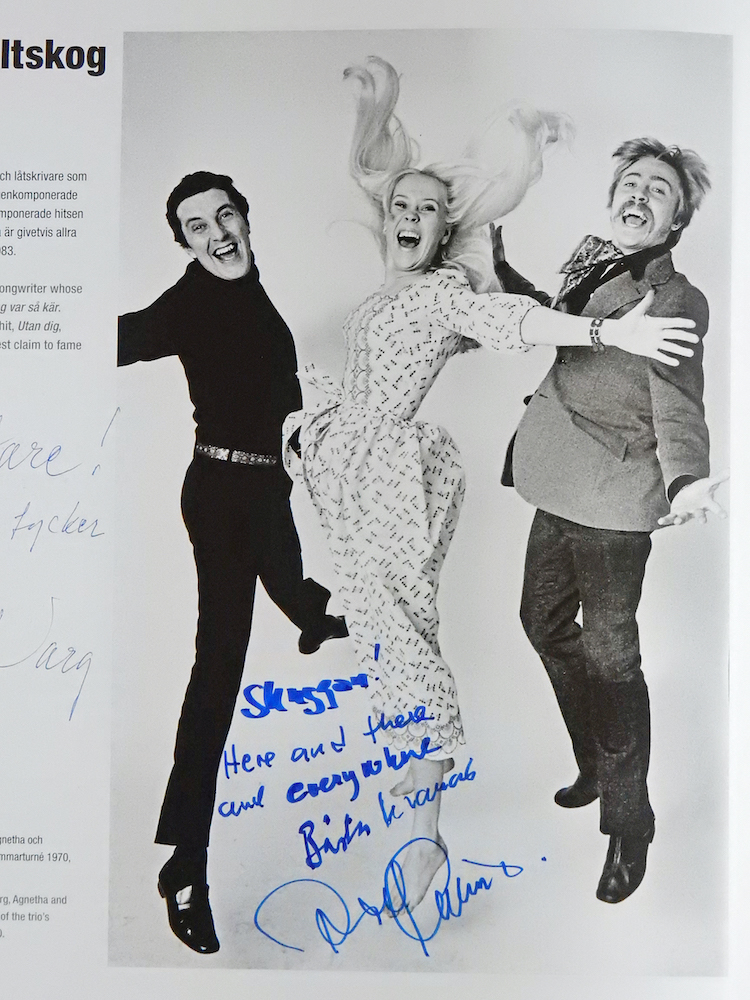 ltskog
ch låtskrivare som
enkomponerade
mponerade hitsen
är givetvis allra
983.
songwriter whose
g var så kär.
hit, Utan dig,
est claim to fame
are!
tycker
Warg
Skuggan!
Here and there
and everywhere
Bästa kramar
gnetha och
mmarturné 1970,
rg, Agnetha and
of the trio's
0.